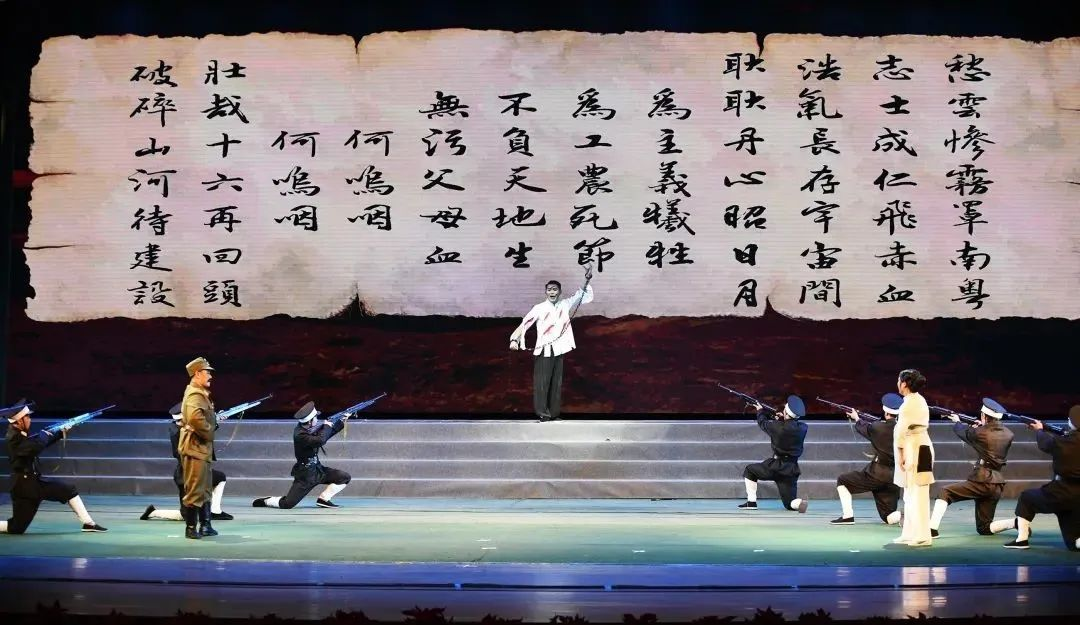 愁雲慘霧罩南粵
志士成仁飛赤血
浩氣長存宇宙間
耿耿丹心昭日月
爲主義犧牲
爲工農死節
不負天地生
無污父母血
何嗚咽
何嗚咽
壯哉十六再回頭
破碎山河待建設